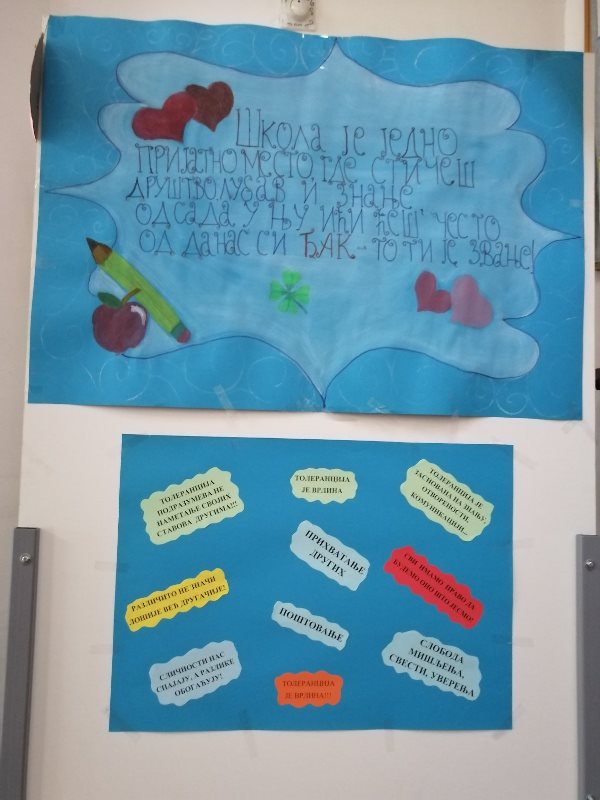 Школа је једно
пријатно место где стичеш
друштво, љубав и знање
од сада у њу ићи ћеш често
од данас си ЂАК - то ти је звање!
ТОЛЕРАНЦИЈА
ПОДРАЗУМЕВА НЕ
НАМЕТАЊЕ СВОЈИХ
СТАВОВА ДРУГИМА!!!
ТОЛЕРАНЦИЈА
ЈЕ ВРЛИНА
ТОЛЕРАНЦИЈА ЈЕ
ЗАСНОВАНА НА ЗНАЊУ,
ОТВОРЕНОСТИ,
КОМУНИКАЦИЈИ...
ПРИХВАТАЊЕ
ДРУГИХ
РАЗЛИЧИТО НЕ ЗНАЧИ
ЛОШИЈЕ ВЕЋ ДРУГАЧИЈЕ!
СВИ ИМАМО ПРАВО ДА
БУДЕМО ОНО ШТО ЈЕСМО!
ПОШТОВАЊЕ
СЛИЧНОСТИ НАС
СПАЈАЈУ, А РАЗЛИКЕ
ОБОГАЋУЈУ!
ТОЛЕРАНЦИЈА
ЈЕ ВРЛИНА!!!
СЛОБОДА
МИШЉЕЊА,
СВЕСТИ, УВЕРЕЊА